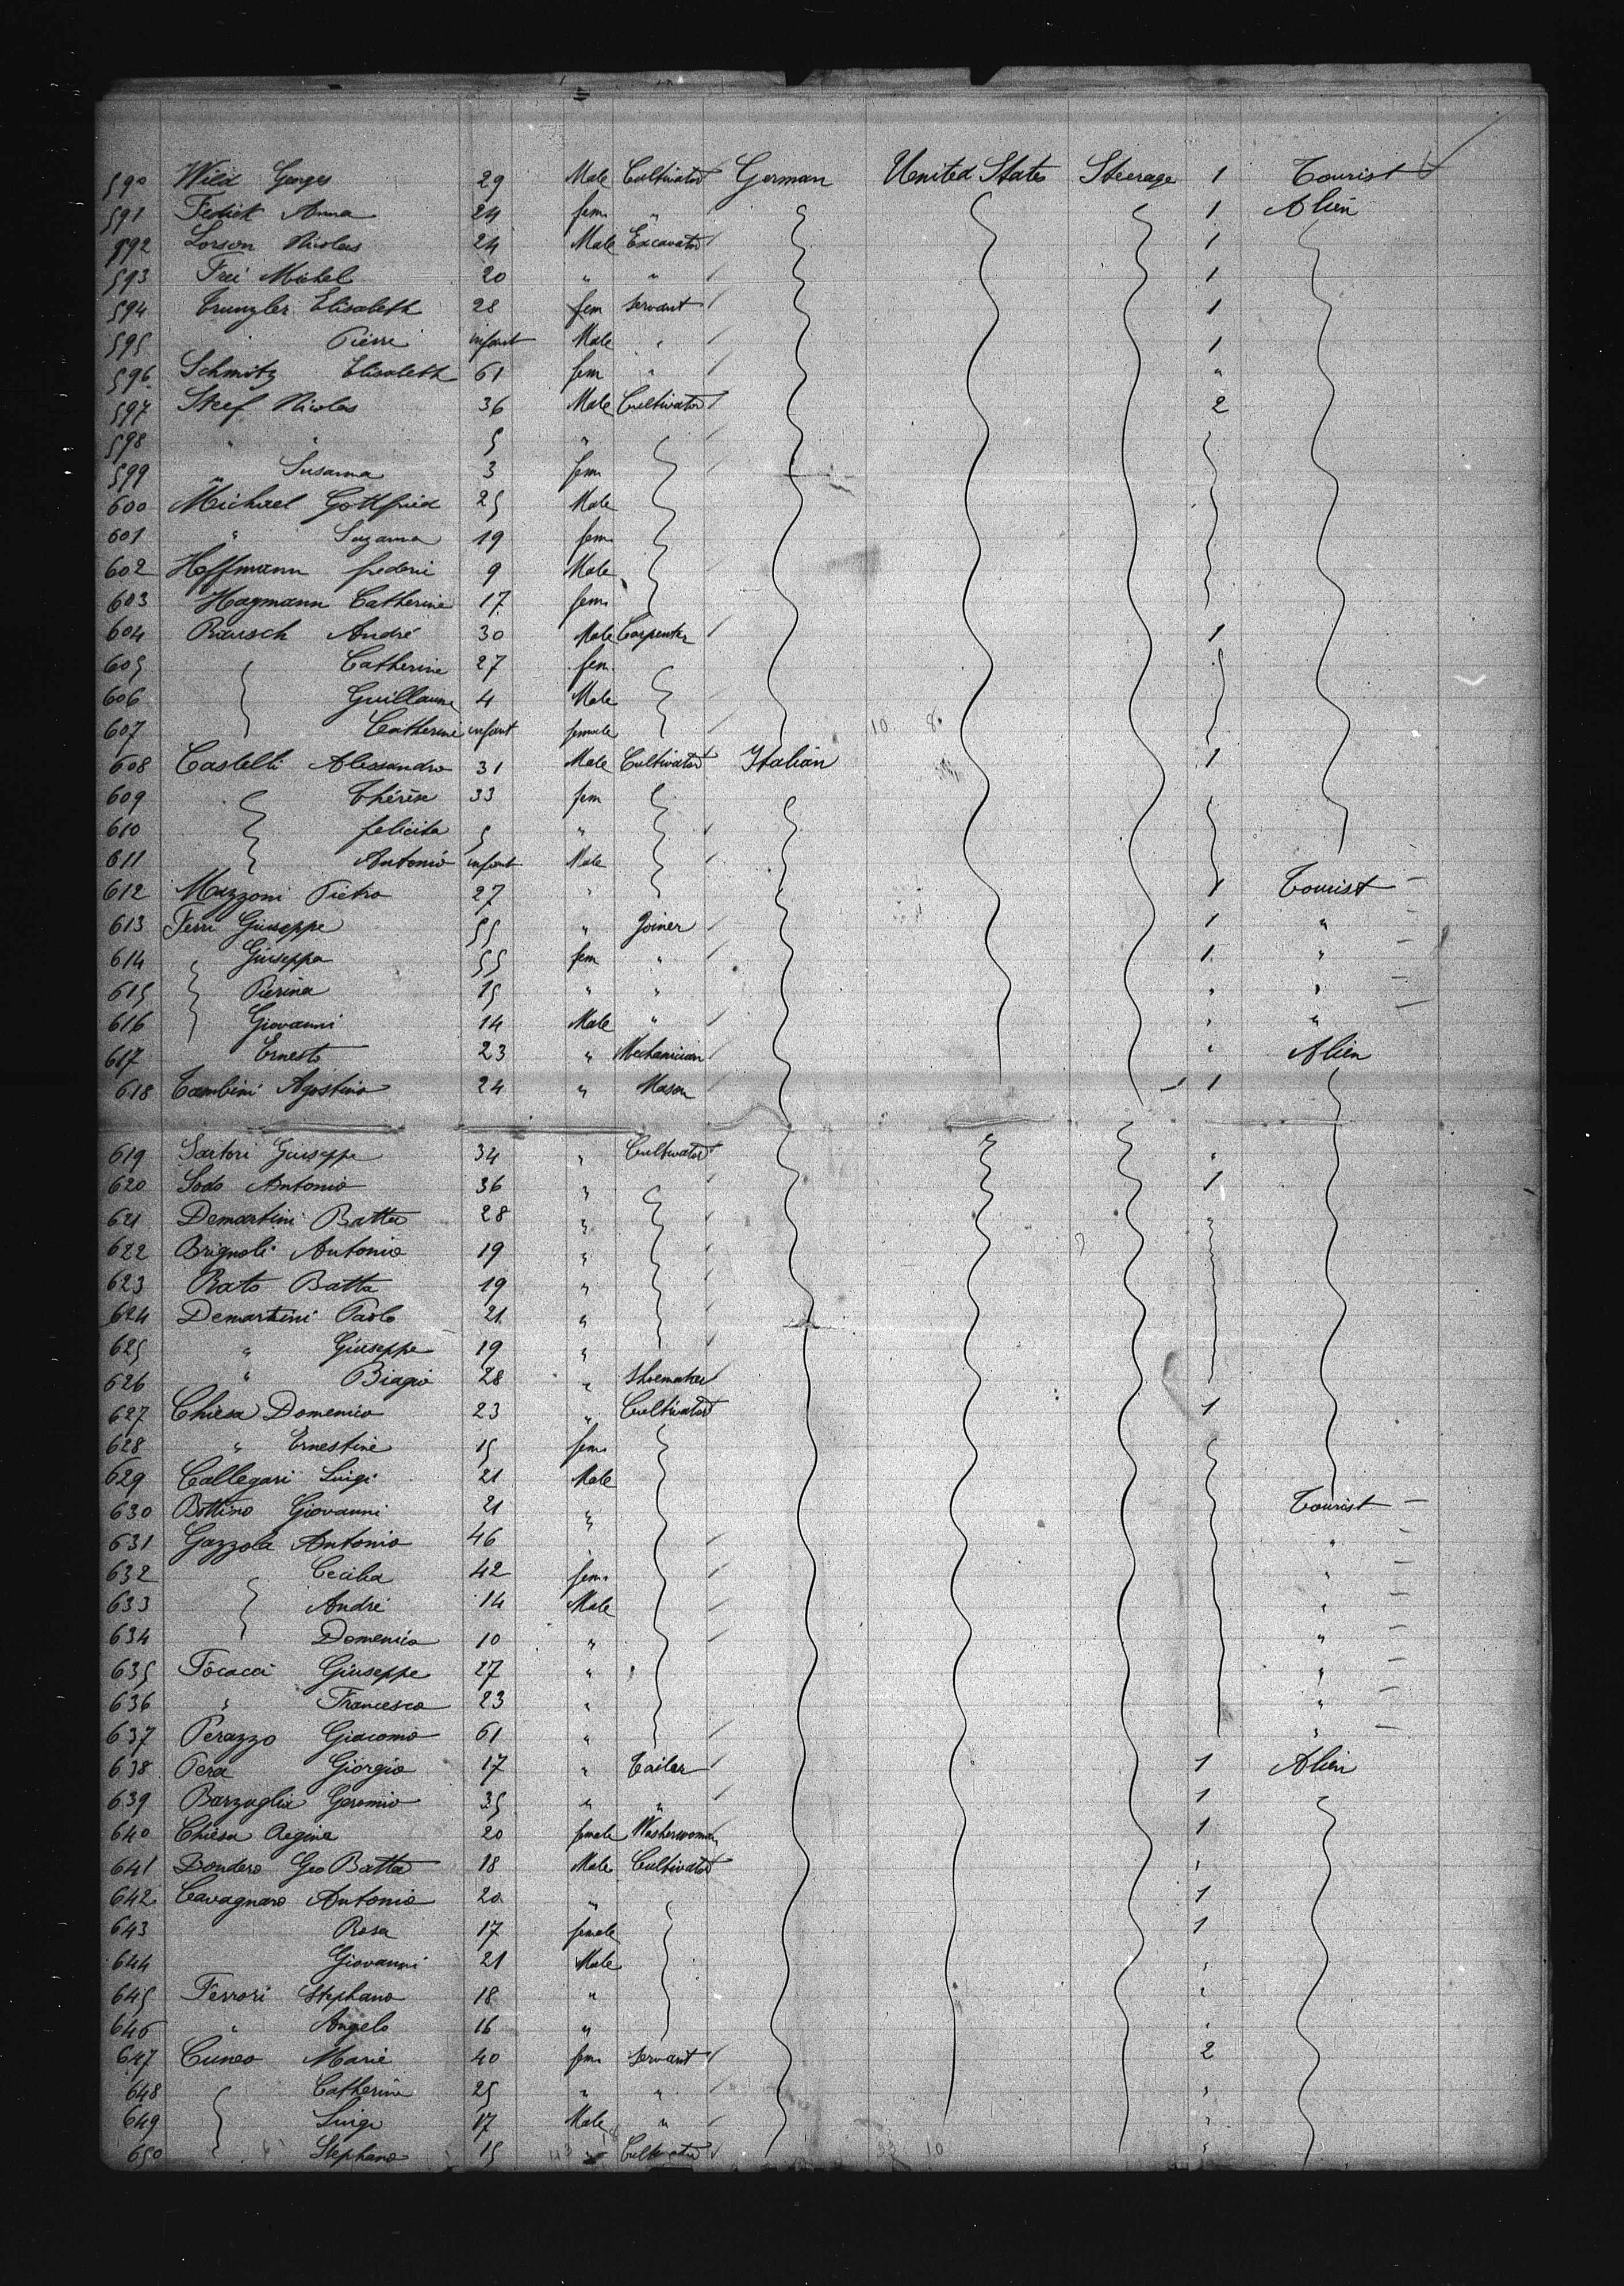 590 Wild Georges 29 Male Cultivator German United States Steerage 1 Tourist
591 Anna 24 fem " 1 Alien
592 Lorson Nicolas 24 Male Excavator 1
593 Frei Michel 20 " " 1
594 Trunzler Elisabeth 28 fem servant 1
595 Pierre infant Male " 1
596 Schmitz Elisabeth 61 fem " "
597 Steef Nicolas 36 Male Cultivator 2
598 " " 5 "
599 " Susanna 3 fem
600 Michael Gottfried 25 Male
601 " Suzanna 19 fem
602 Hoffmann frederic 9 Male
603 Hagmann Catherine 17 fem
604 Rausch André 30 Male Carpenter 1
605 Catherine 27 fem
606 Guillaume 4 Male
607 Catherine infant female 10 8
608 Castelli Alessandro 31 Male Cultivator Italian 1
609 Thérèse 33 fem
610 felicita 5 "
611 Antonio infant Male
612 Mazzoni Pietro 27 " 1 Tourist
613 Ferri Giuseppe 55 " Joiner 1 "
614 Giuseppa 55 fem " 1 "
615 Pierina 15 " " " "
616 Giovanni 14 Male " " "
617 Ernesto 23 " Mechanician " Alien
618 Tambini Agostino 24 " Mason 1
619 Sartori Giuseppe 34 " Cultivator "
620 Sodo Antonio 36 " 1
621 Demartini Batta 28 " "
622 Brignoli Antonio 19 "
623 Rato Batta 19 "
624 Demartini Paolo 21 "
625 " Giuseppe 19 "
626 " Biagio 28 " Shoemaker
627 Chiesa Domenico 23 " Cultivator 1
628 " Ernestine 15 fem
629 Callegari Luigi 21 Male
630 Bottino Giovanni 21 " Tourist
631 Gazzola Antonio 46 " "
632 Cecilia 42 fem "
633 André 14 Male "
634 Domenico 10 " "
635 Focacci Giuseppe 27 " "
636 " Francesco 23 " "
637 Perazzo Giacomo 61 " "
638 Pera Giorgio 17 " Tailor 1 Alien
639 Barzaglia Geremio 35 " " 1
640 Chiesa Regina 20 female Washerwoman 1
641 Dondero Geo Batta 18 Male Cultivator "
642 Cavagnaro Antonio 20 " 1
643 Rosa 17 female 1
644 Giovanni 21 Male "
645 Ferrari Stephano 18 " "
646 " Angelo 16 " "
647 Cuneo Marie 40 fem servant 2
648 Catherine 25 " " "
649 Luigi 17 Male " "
650 Stephano 15 " Cultivator "